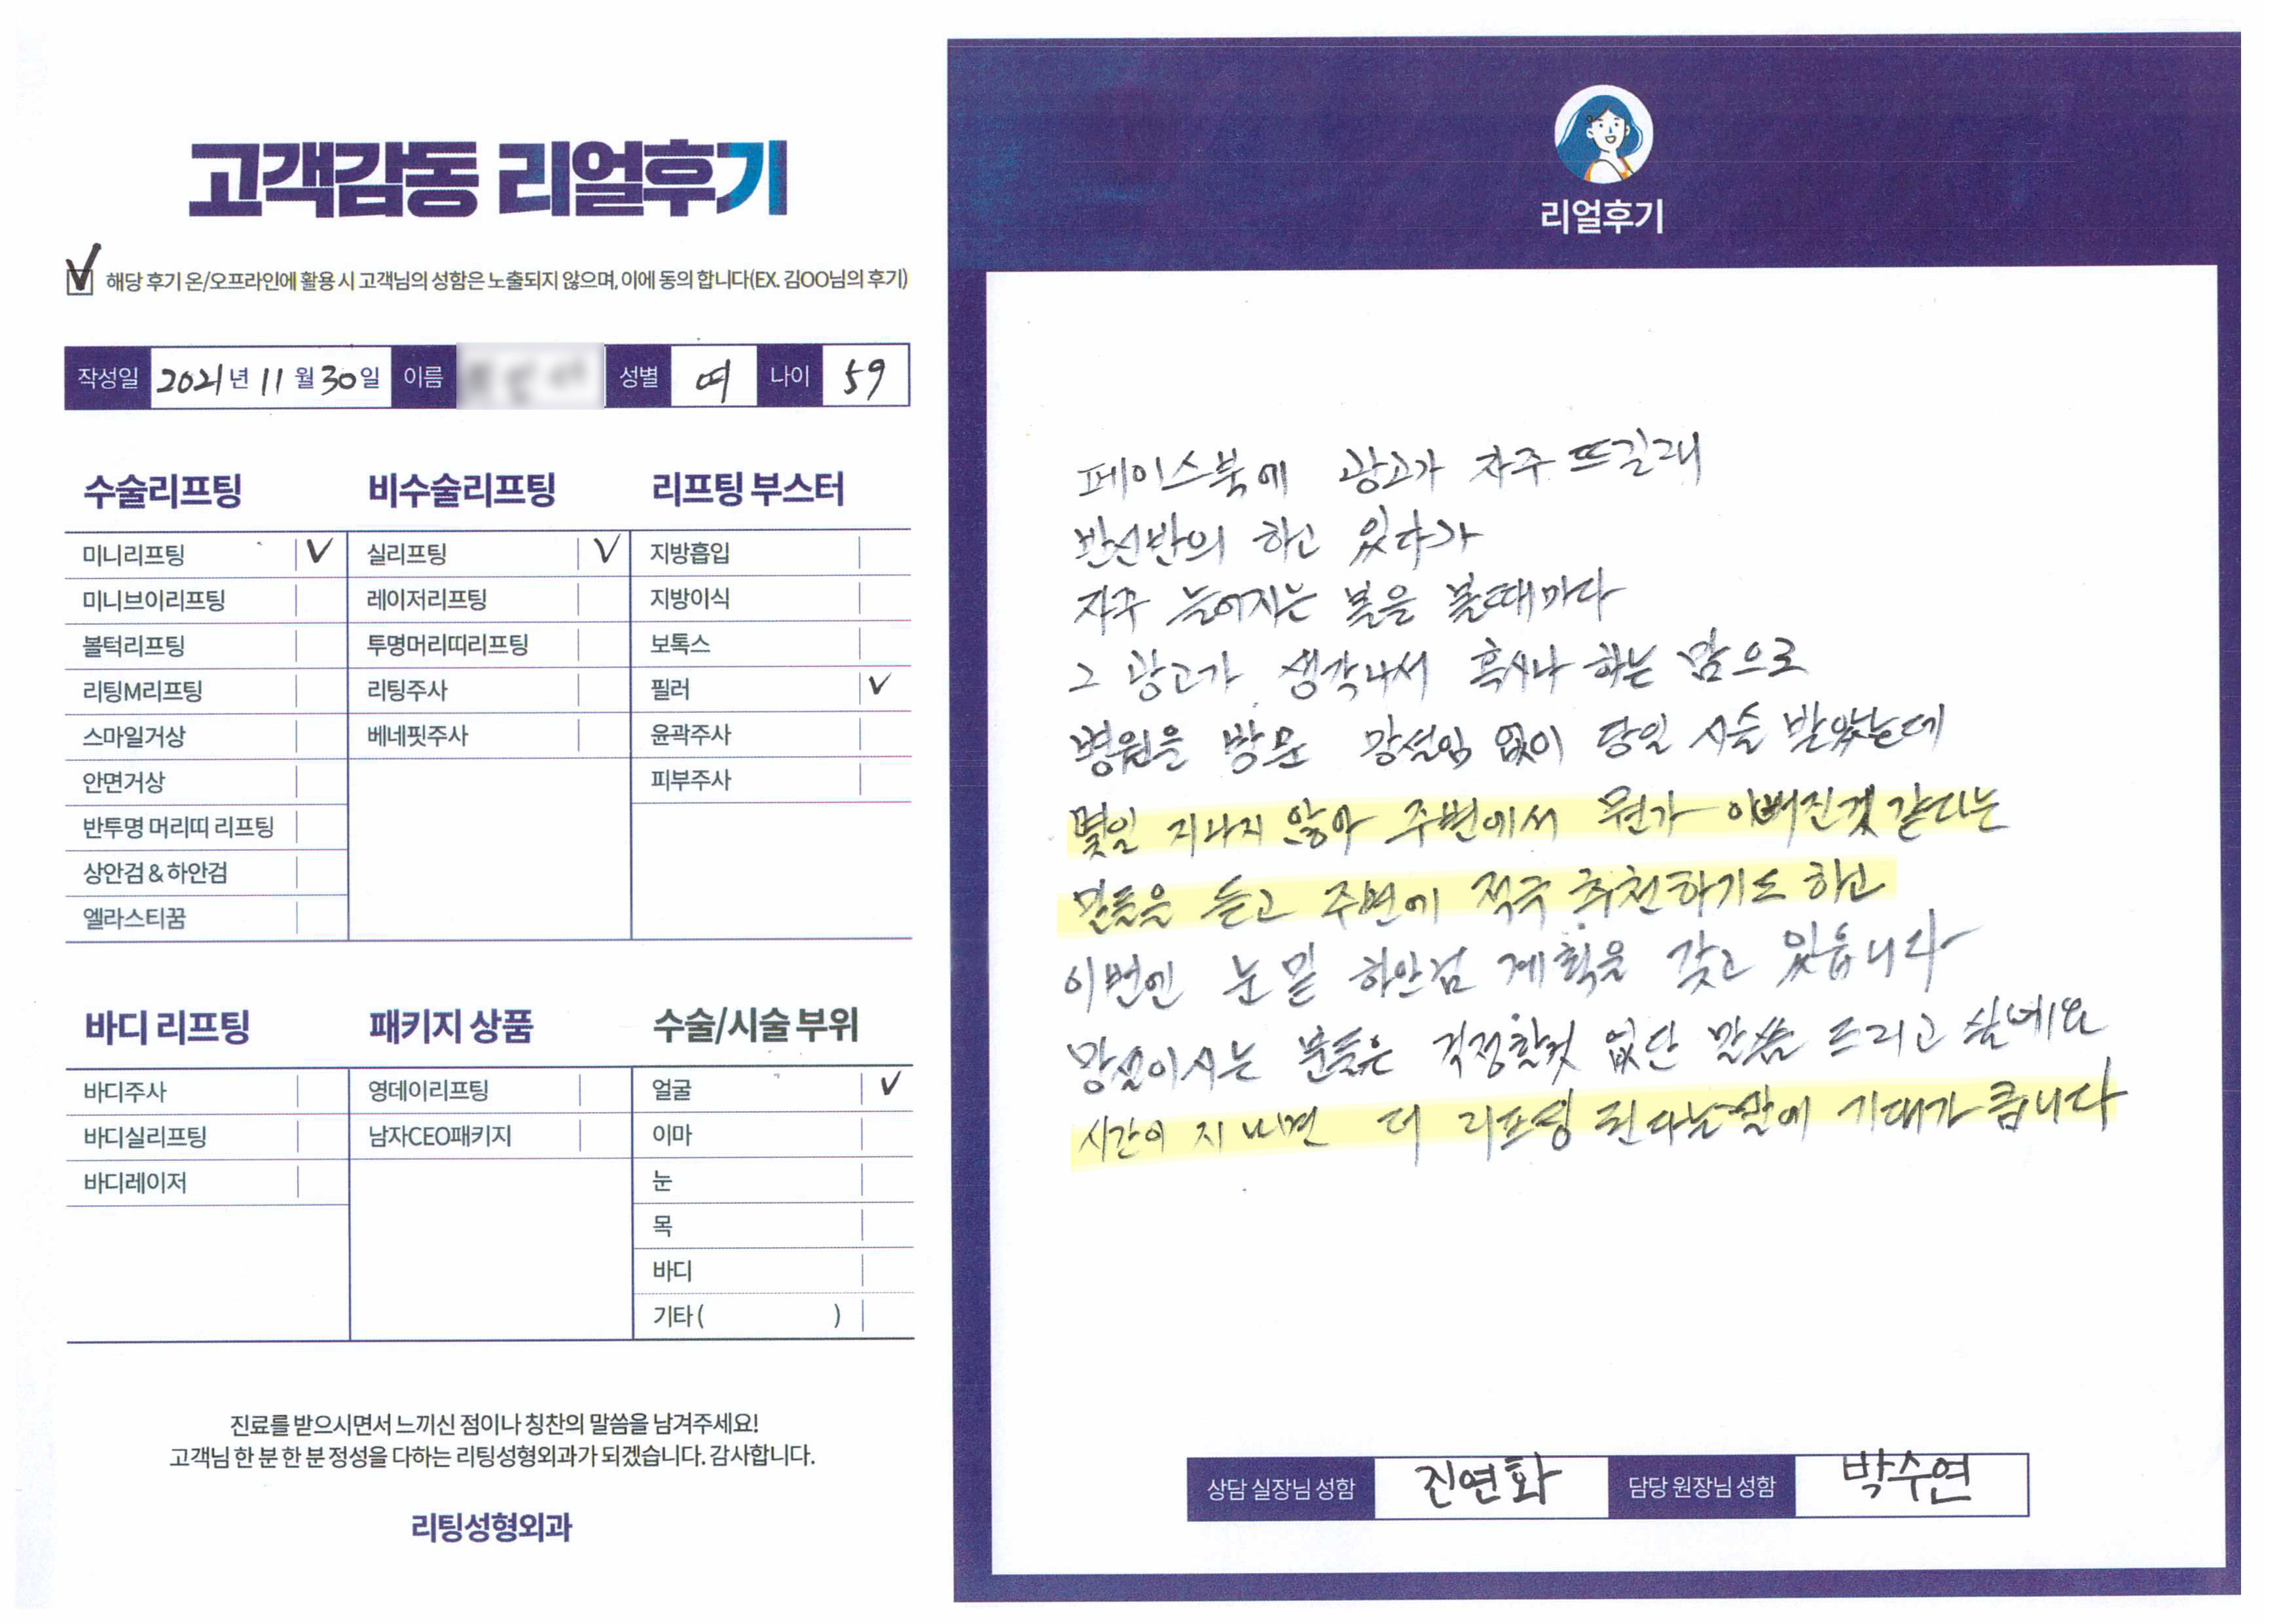 고객감동 리얼후기
해당 후기 온/오프라인에 활용 시 고객님의 성함은 노출되지 않으며, 이에 동의 합니다(EX. 김OO님의 후기)
작성일 2021년 11월 30일 이름 성별 여 나이 59
수술리프팅
미니리프팅 V
미니브이리프팅
볼턱리프팅
리팅M리프팅
스마일거상
안면거상
반투명 머리띠 리프팅
상안검 & 하안검
엘라스티꿈
비수술리프팅
실리프팅 V
레이저리프팅
투명머리띠리프팅
리팅주사
베네핏주사
리프팅 부스터
지방흡입
지방이식
보톡스
필러 V
윤곽주사
피부주사
바디 리프팅
바디주사
바디실리프팅
바디레이저
패키지 상품
영데이리프팅
남자CEO패키지
수술/시술 부위
얼굴 V
이마
눈
목
바디
기타 ( )
진료를 받으시면서 느끼신 점이나 칭찬의 말씀을 남겨주세요!
고객님 한 분 한 분 정성을 다하는 리팅성형외과가 되겠습니다. 감사합니다.
리팅성형외과
리얼후기
페이스북에 광고가 자주 뜨길래
반신반의 하고 있다가
자꾸 늘어지는 볼을 볼때마다
그 광고가 생각나서 혹시나 하는 맘으로
병원을 방문 망설임 없이 당일 시술 받았는데
몇일 지나지 않아 주변에서 뭔가 이뻐진것 같다는
말들을 듣고 주변에 적극 추천하기도 하고
이번엔 눈밑 하안검 계획을 갖고 있읍니다
망설이시는 분들은 걱정할것 없단 말씀 드리고 싶네요
시간이 지나면 더 리프팅 된다는 말에 기대가 큽니다
상담 실장님 성함 진연화 담당 원장님 성함 박수연